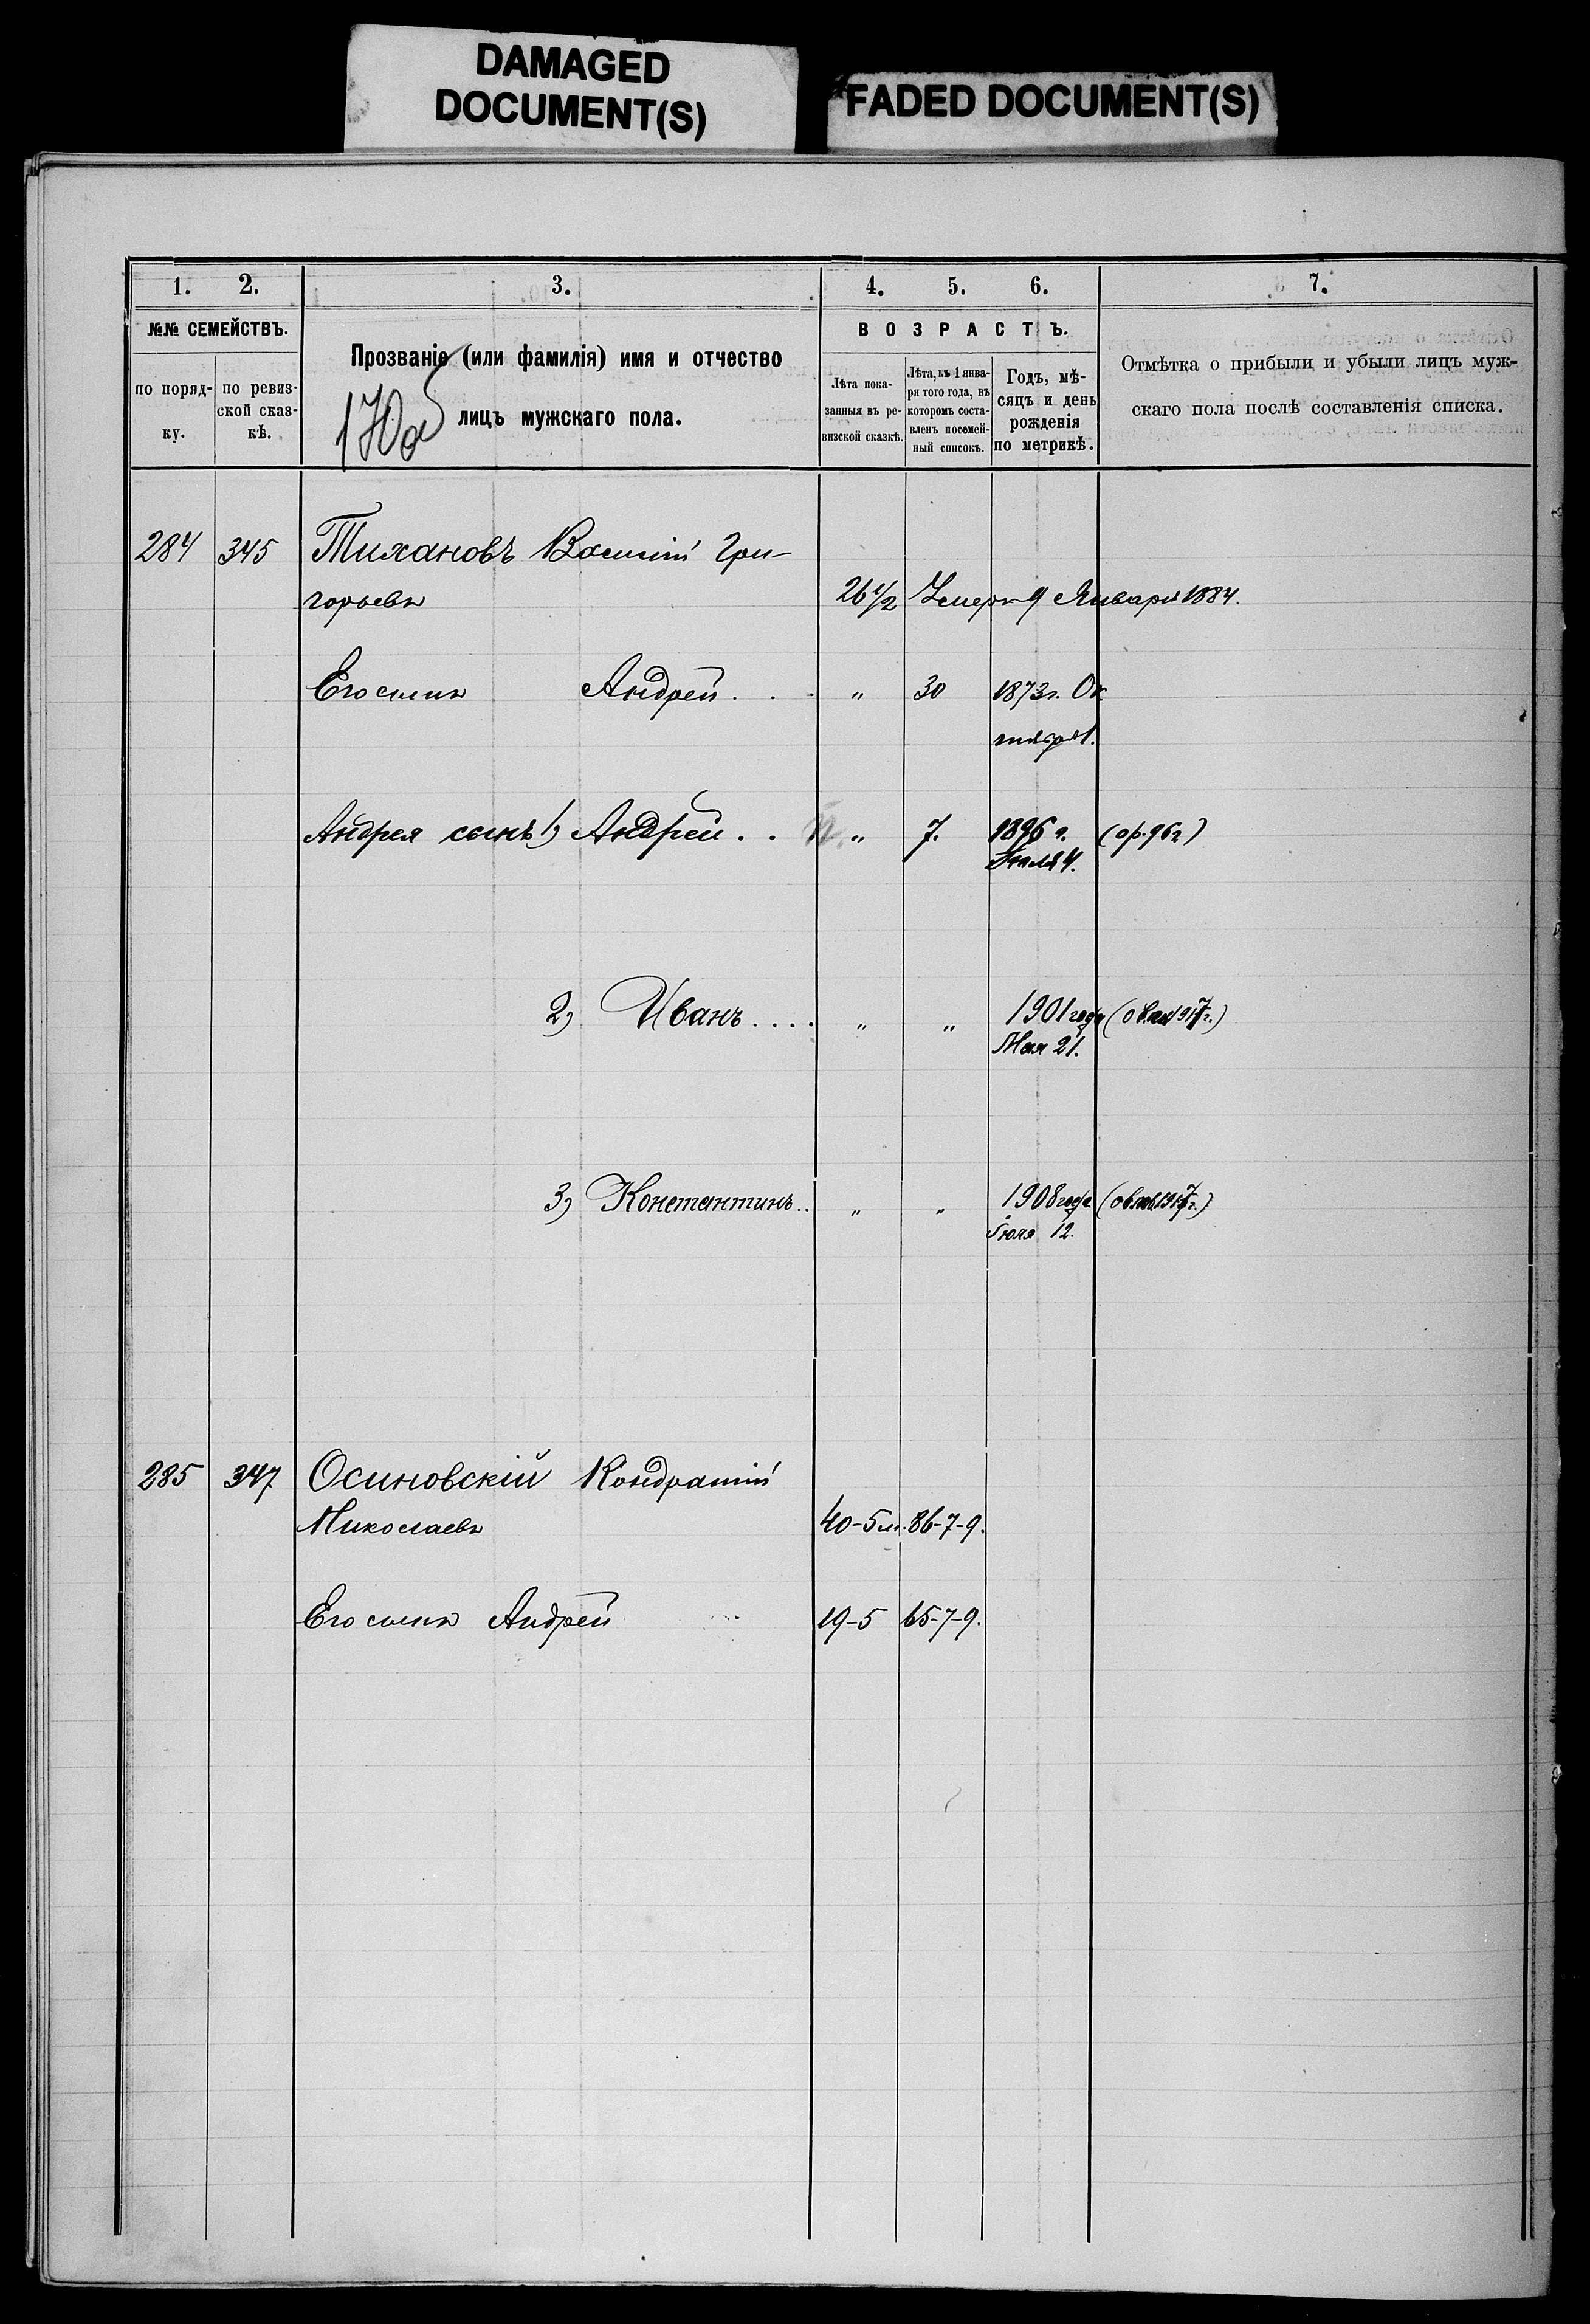 DAMAGED
DOCUMENT(S)
FADED DOCUMENT(S)
1. 2. 3. 4. 5. 6. 7.
№№ СЕМЕЙСТВЪ.
по поряд-
ку.
по ревиз-
ской сказ-
кѣ.
Прозваніе (или фамилія) имя и отчество
лицъ мужскаго пола.
ВОЗРАСТЪ.
Лѣта пока-
занныя въ ре-
визской сказкѣ.
Лѣта, къ 1 янва-
ря того года, въ
которомъ соста-
вленъ посемей-
ный списокъ.
Годъ, мѣ-
сяцъ и день
рожденія
по метрикѣ.
Отмѣтка о прибыли и убыли лицъ муж-
скаго пола послѣ составленія списка.
284 345 Тихановъ Василій Гри-
горьевъ 26 1/2 Умеръ 9 Января 1884.
Его сынъ Андрей . . „ 30 1873г. Ок
тября 1.
Андрея сынъ 1) Андрей . . „ 7. 1896 г. (ор. 96г)
Іюля 4.
2) Иванъ .... „ „ 1901 года 1917г.)
Мая 21.
3) Константинъ .. „ „ 1908 года 1917г.)
Іюля 12.
285 347 Осиновскій Кондратій
Николаевъ 40-5м. 86-7-9.
Его сынъ Андрей 19-5 65-7-9.